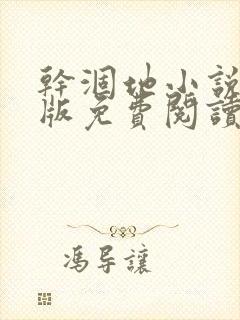 幹涸地小說
版免費閱讀
馮导讓